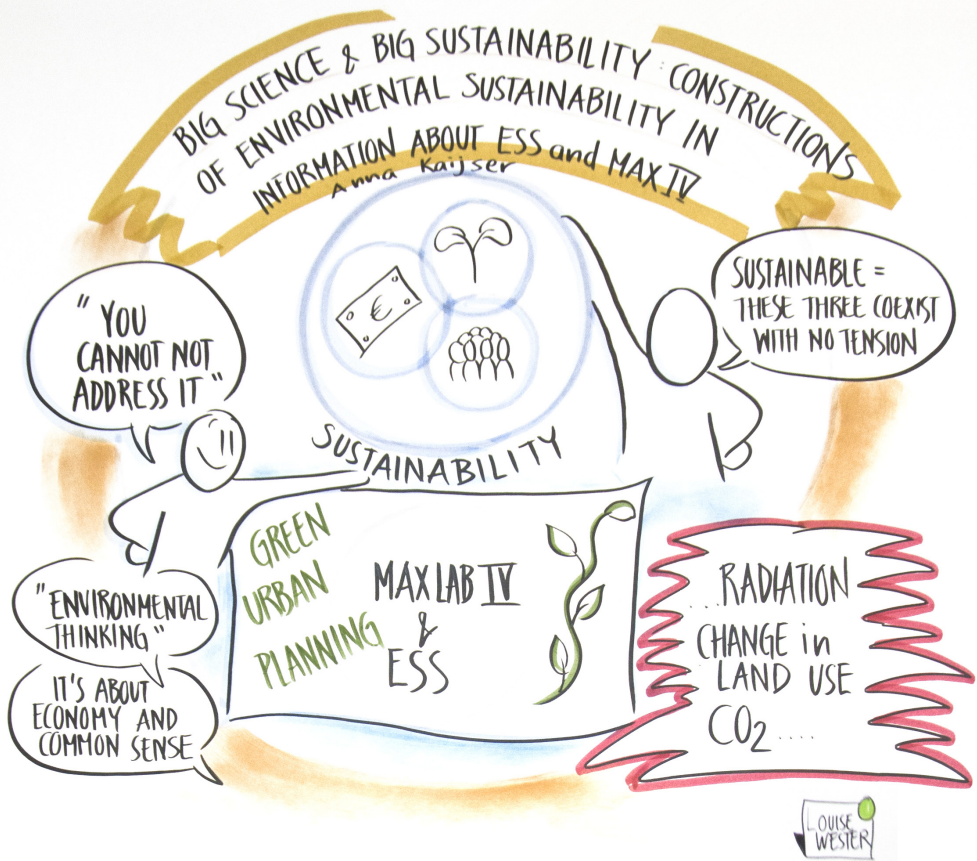 BIG SCIENCE & BIG SUSTAINABILITY : CONSTRUCTIONS
OF ENVIRONMENTAL SUSTAINABILITY IN
INFORMATION ABOUT ESS and MAX IV
Anna Kaijser
"YOU
CANNOT NOT
ADDRESS IT"
€
SUSTAINABLE =
THESE THREE COEXIST
WITH NO TENSION
SUSTAINABILITY
GREEN
URBAN
PLANNING
MAX LAB IV
&
ESS
"ENVIRONMENTAL
THINKING"
IT'S ABOUT
ECONOMY AND
COMMON SENSE
...RADIATION
CHANGE in
LAND USE
CO2....
LOUISE
WESTER